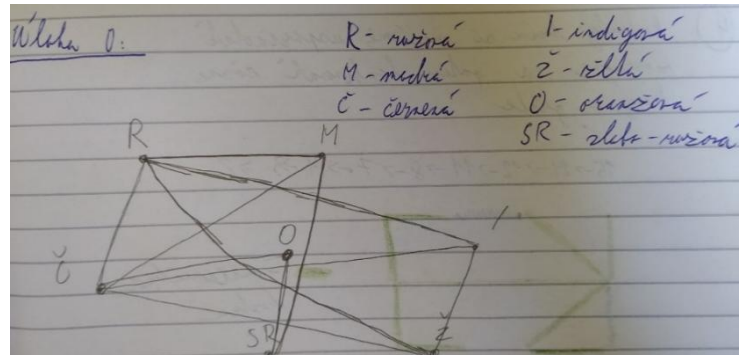 Úloha 0:
R - ružová
M - modrá
Č - červená
I - indigová
Ž - žltá
O - oranžová
SR - slabo-ružová
R
M
O
I
Č
SR
Ž